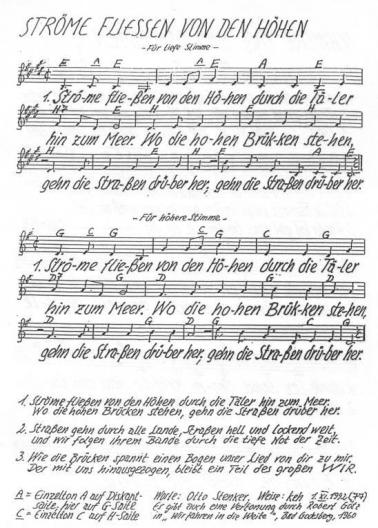 STRÖME FLIESSEN VON DEN HÖHEN
- Für tiefe Stimme -
E A E A E A E
1. Strö-me flie-ßen von den Hö-hen durch die Tä-ler
H7 E H E
hin zum Meer. Wo die ho-hen Brük-ken ste-hen,
H E H E A E
gehn die Stra-ßen drü-ber her, gehn die Stra-ßen drü-ber her.
- Für höhere Stimme -
G C G C G C G
1. Strö-me flie-ßen von den Hö-hen durch die Tä-ler
D7 G D G
hin zum Meer. Wo die ho-hen Brük-ken ste-hen,
D G D G C G
gehn die Stra-ßen drü-ber her, gehn die Stra-ßen drü-ber her.
1. Ströme fließen von den Höhen durch die Täler hin zum Meer.
Wo die hohen Brücken stehen, gehn die Straßen drüber her.
2. Straßen gehn durch alle Lande, Straßen hell und lockend weit,
und wir folgen ihrem Bande durch die tiefe Not der Zeit.
3. Wie die Brücken spannt einen Bogen unser Lied von dir zu mir,
Der mit uns hinausgezogen, bleibt ein Teil des großen WIR.
A = Einzelton A auf Diskant-
saite, hier auf G-Saite
C = Einzelton C auf H-Saite
Worte: Otto Stenker, Weise: keh
Er gibt auch eine Vertonung durch Robert Götz
in „Wir fahren in die Weite", Bad Godesberg, 1960